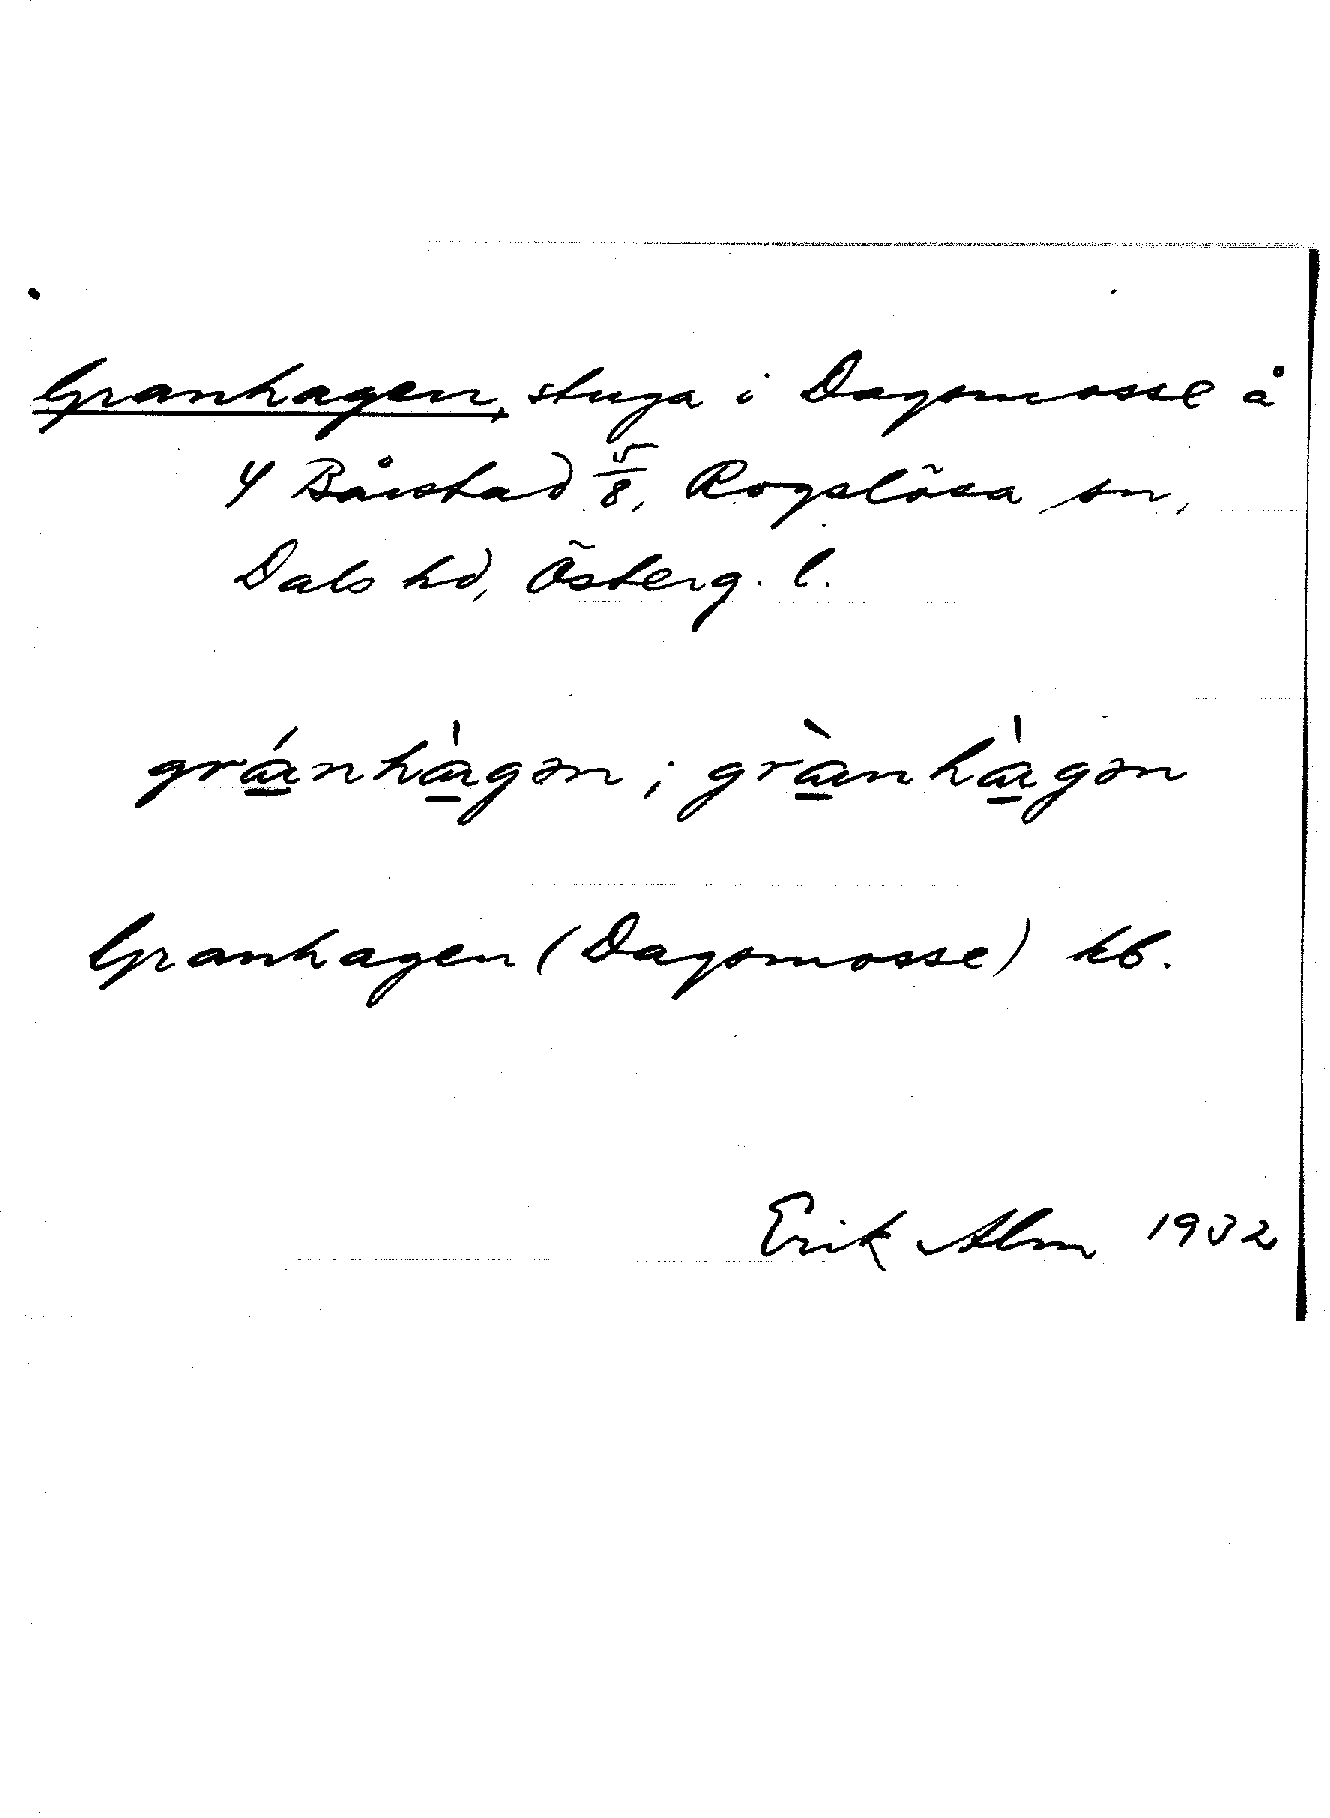 Granhagen, stuga i Dagsmosse å
4 Bårstad 5/8, Rogslösa sn,
Dals hd, Österg. l.
gránhàgən ; grànhàgən
Granhagen (Dagsmosse) kb.
Erik Alm 1932